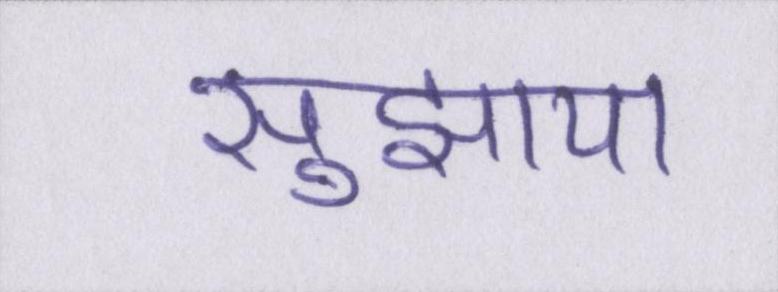 सुझाया